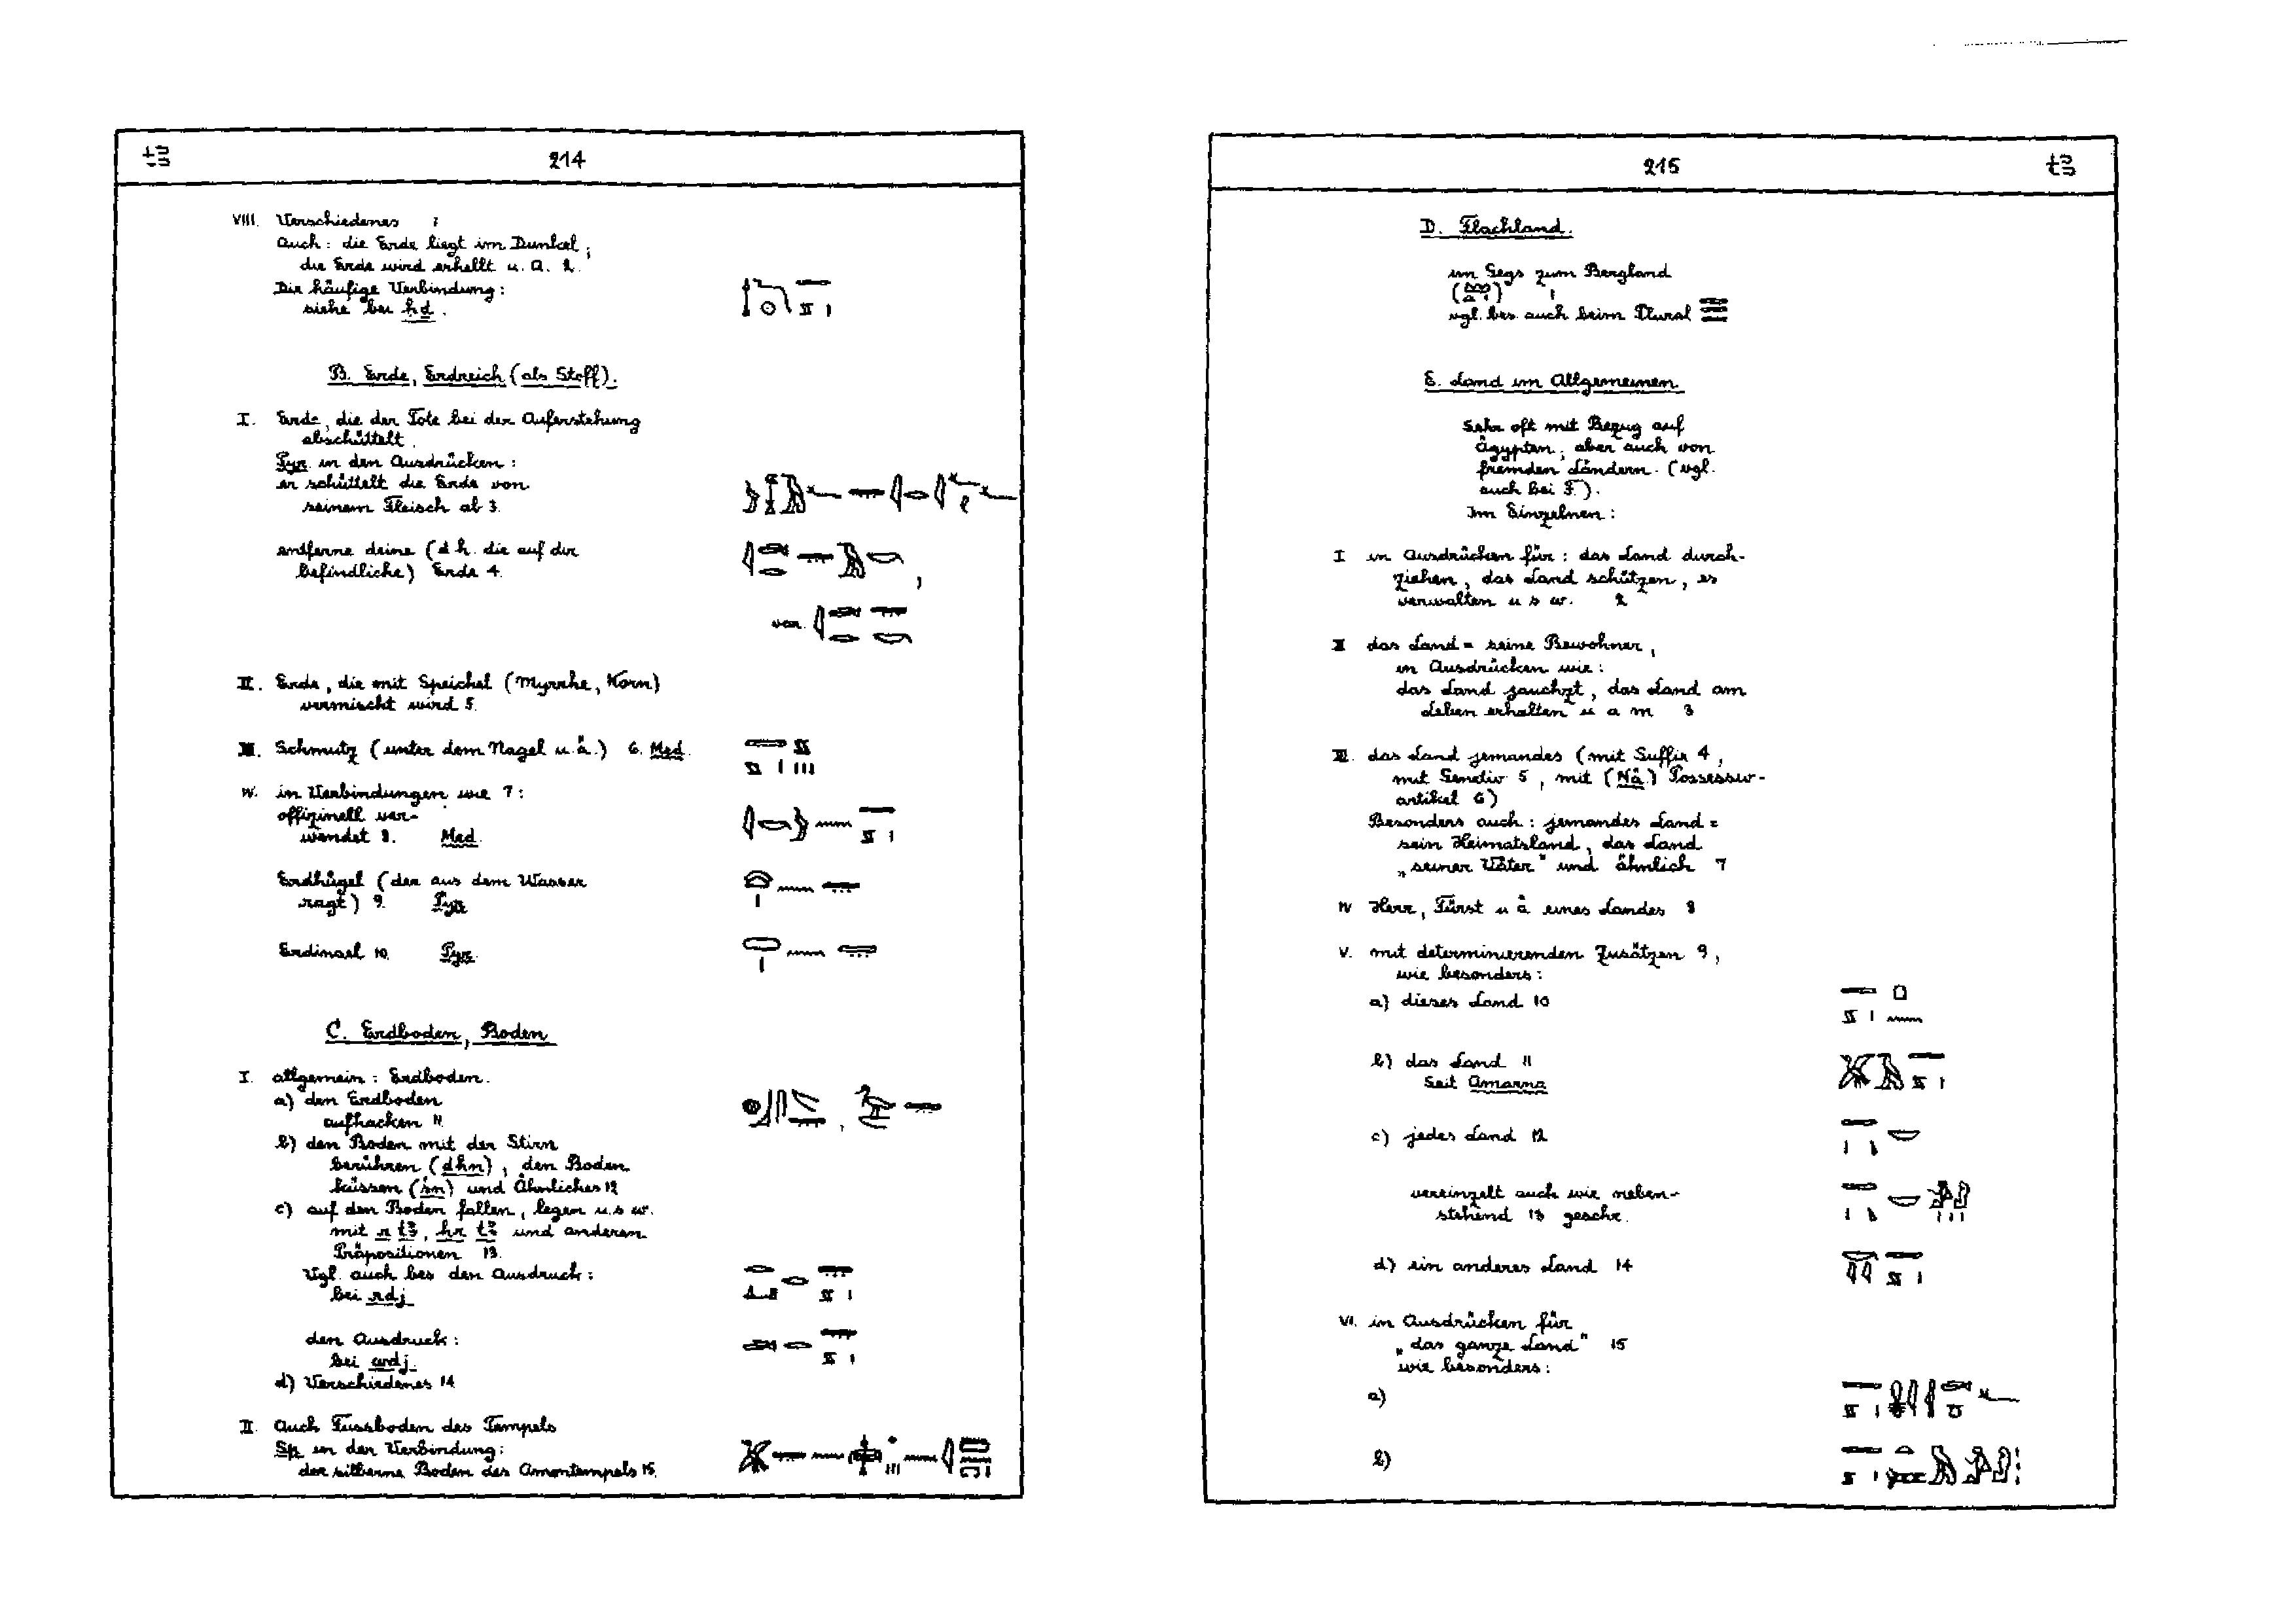 tꜣ
214
VIII. Verschiedenes 1
Auch: die Erde liegt im Dunkel;
die Erde wird erhellt u. a. 2.
Die häufige Verbindung:
siehe bei ḥḏ.
B. Erde, Erdreich (als Stoff).
I. Erde, die der Tote bei der Auferstehung
abschüttelt.
Pyr in den Ausdrücken:
er schüttelt die Erde von
seinem Fleisch ab 3.
entferne deine (d h. die auf dir
befindliche) Erde 4.
var.
II. Erde, die mit Speichel (Myrrhe, Korn)
vermischt wird 5.
III. Schmutz (unter dem Nagel u. ä.) 6. Med.
IV. in Verbindungen wie 7:
offizinell ver-
wendet 8. Med.
Erdhügel (der aus dem Wasser
ragt) 9. Pyr
Erdinsel 10. Pyr.
C. Erdboden, Boden
I. allgemein: Erdboden.
a) den Erdboden
aufhacken 11.
b) den Boden mit der Stirn
berühren (dhn), den Boden
küssen (śn) und Ähnliches 12
c) auf den Boden fallen, legen u. s w.
mit r tꜣ, ḥr tꜣ und anderen
Präpositionen 13.
Vgl. auch bes den Ausdruck:
bei rdj
den Ausdruck:
bei wdj.
d) Verschiedenes 14
II. Auch Fussboden des Tempels
Sp in der Verbindung:
der silberne Boden des Amontempels 15.
215
tꜣ
D. Flachland.
im Gegs zum Bergland
( ) 1
vgl. bes. auch beim Plural
E. Land im Allgemeinen
Sehr oft mit Bezug auf
Ägypten, aber auch von
fremden Ländern. (vgl.
auch bei F.).
Im Einzelnen:
I in Ausdrücken für: das Land durch-
ziehen, das Land schützen, es
verwalten u s w. 2
II das Land = seine Bewohner,
in Ausdrücken wie:
das Land jauchzt, das Land am
Leben erhalten u a m 3
III. das Land jemandes (mit Suffix 4,
mit Genetiv 5, mit (Nä) Possessiv-
artikel 6)
Besonders auch: jemandes Land =
sein Heimatsland, das Land
„seiner Väter" und ähnlich 7
IV Herr, Fürst u ä eines Landes 8
V. mit determinierenden Zusätzen 9,
wie besonders:
a) dieses Land 10
b) das Land 11
Seit Amarna
c) jedes Land 12
vereinzelt auch wie neben-
stehend 13 geschr.
d) ein anderes Land 14
VI. in Ausdrücken für
„das ganze Land" 15
wie besonders:
a)
b)